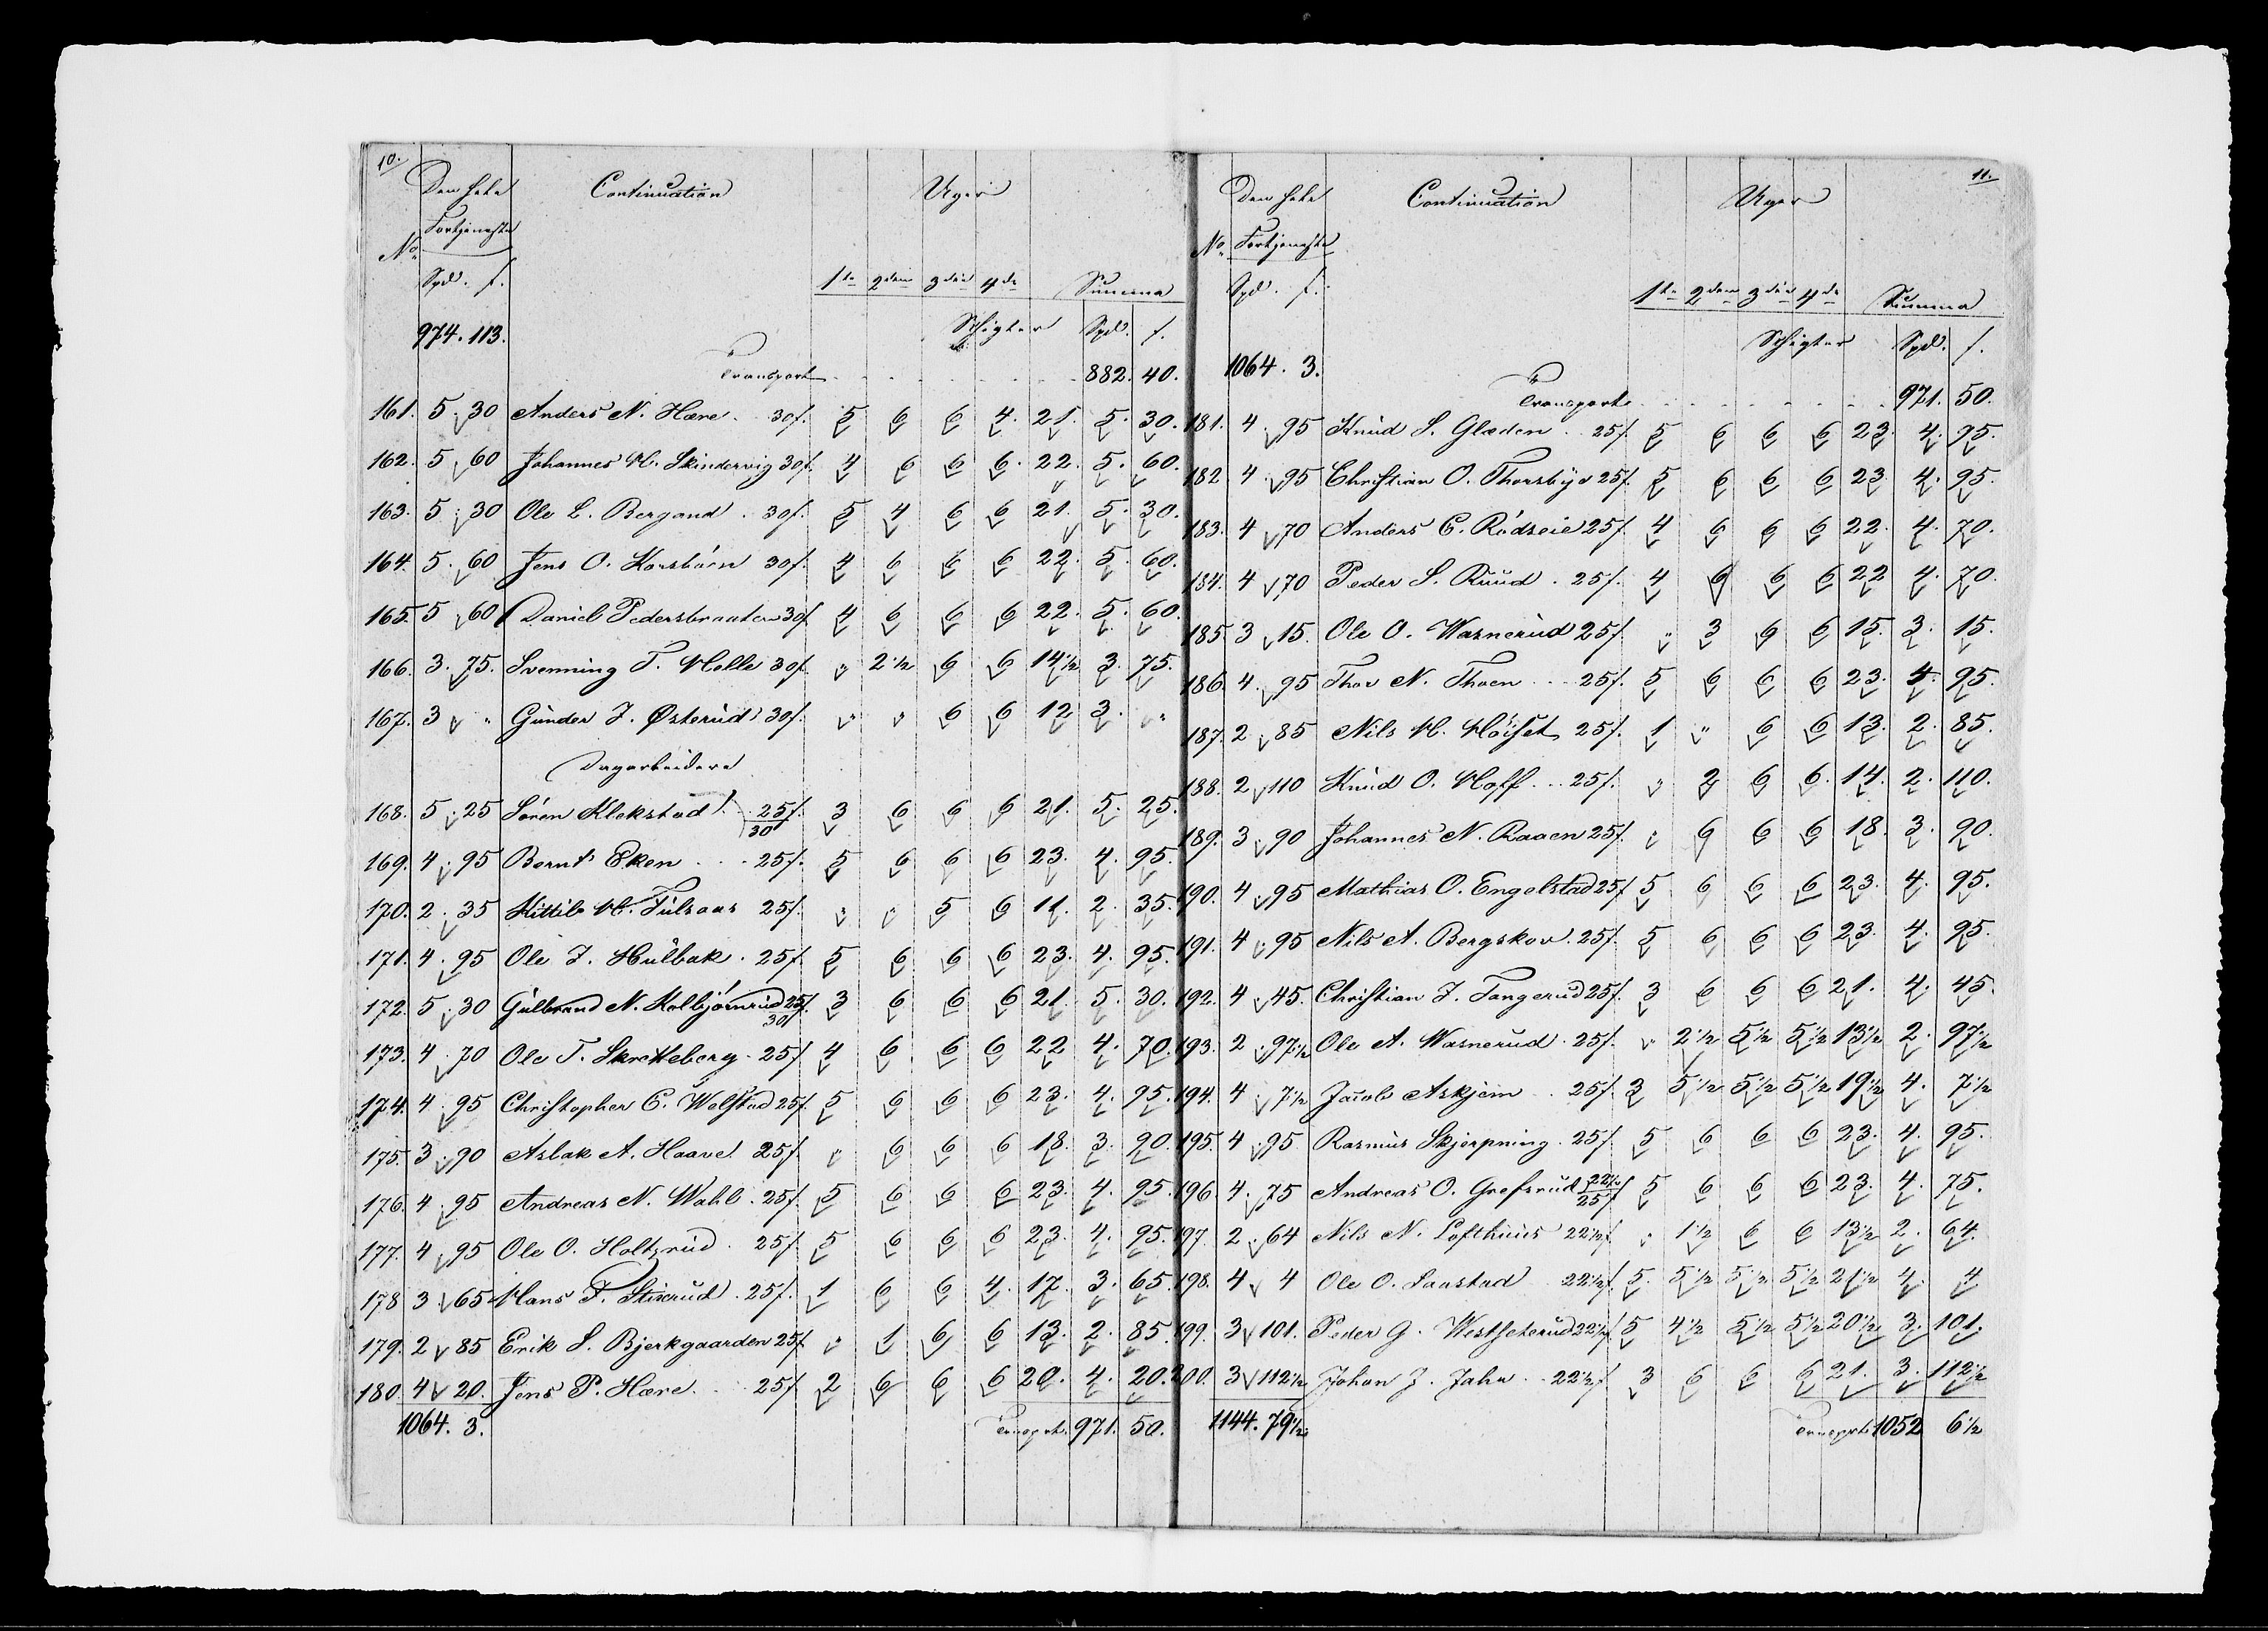 10.
Den hele Continuation Uger
Fortjeneste
No
Spd. f. 1te 2den 3die 4de Summa
974. 113. Schigter Spd. f.
Transport 882. 40.
161. 5. 30 Anders N. Hære 30f. 5 6 6 4. 21. 5. 30.
162. 5 60 Johannes H. Skindervig 30f. 4 6 6 6. 22. 5. 60.
163. 5. 30 Ole L. Bergand 30f. 5 4 6 6 21. 5. 30.
164. 5. 60 Jens O. Korsbøen 30f. 4 6 6 6 22. 5. 60.
165. 5 60 Daniel Pedersbraaten 30f 4 6 6 6 22. 5. 60.
166. 3. 75. Svenning T. Molle 30f. " 2 1/2 6 6 14 1/2 3. 75.
167. 3 " Gunder J. Østerud 30f. " " 6 6 12 3. "
Dagarbeidere
168. 5. 25 Søren Klekstad 25f./30 3 6 6 6 21. 5. 25.
169. 4. 95 Bernt Eken 25f. 5 6 6 6 23. 4. 95.
170. 2. 35 Kittil H. Tulsaas 25f. " " 5 6 11. 2. 35.
171. 4. 95 Ole J. Hulbak 25f. 5 6 6 6 23. 4. 95.
172. 5. 30 Gulbrand N. Kolbjørnrud 25f./30 3 6 6 6 21. 5. 30.
173. 4. 70 Ole T. Skretteberg 25f 4 6 6 6 22 4. 70.
174. 4. 95 Christopher C. Wolstad 25f. 5 6 6 6 23. 4. 95.
175. 3. 90 Aslak A. Haave 25f. " 6 6 6 18. 3. 90.
176. 4. 95 Andreas N. Wahl 25f. 5 6 6 6 23. 4. 95.
177. 4 95 Ole O. Holtzrud 25f. 5 6 6 6 23. 4. 95.
178 3 65 Hans T. Stixrud 25f. 1 6 6 4. 17. 3. 65.
179. 2 85 Erik S. Bjerkgaarden 25f " 1 6 6 13. 2. 85.
180. 4 20. Jens P. Hære 25f 2 6 6 6 20. 4. 20.
1064. 3. Transprt. 971. 50.
11.
Den hele Continuation Uger
No Fortjeneste
Spd. f. 1te 2den 3die 4de Summa
Schigter Spd. f.
1064. 3.
Transport 971. 50.
181. 4. 95 Knud S. Glæden 25f. 5 6 6 6 23. 4. 95.
182 4. 95 Christian O. Thorsbye 25f. 5 6 6 6 23. 4. 95.
183. 4 70 Anders C. Rødseie 25f. 4 6 6 6 22. 4. 70.
184. 4 70 Peder S. Ruud 25f. 4 6 6 6 22 4. 70.
185. 3 15. Ole O. Warnerud 25f. " 3 6 6 15. 3. 15.
186. 4. 95 Thor N. Thoen 25f. 5 6 6 6 23. 4. 95.
187. 2 85 Nils H. Høiset 25f. 1 " 6 6 13. 2. 85.
188. 2 110 Knud O. Hoff 25f. " 2 6 6. 14. 2. 110.
189. 3. 90 Johannes N. Raaen 25f. " 6 6 6 18. 3. 90.
190. 4 95 Mathias O. Engelstad 25f 5 6 6 6 23. 4. 95.
191. 4. 95 Nils A. Bergskov 25f. 5 6 6 6 23. 4. 95.
192. 4 45. Christian J. Tangerud 25f. 3 6 6 6 21. 4. 45.
193. 2. 97 1/2 Ole A. Warnerud 25f. " 2 1/2 5 1/2 5 1/2 13 1/2 2. 97 1/2
194. 4. 7 1/2 Jacob Askjem 25f. 3 5 1/2 5 1/2 5 1/2 19 1/2 4. 7 1/2
195. 4. 95 Rasmus Skjerpning 25f. 5 6 6 6 23. 4. 95.
196 4. 75 Andreas O. Grefsrud 22 1/2/25f 5 6 6 6 23. 4. 75.
197. 2. 64 Nils N. Lofthuus 22 1/2 f. " 1 1/2 6 6 13 1/2 2. 64.
198. 4 4 Ole O. Saastad 22 1/2 f. 5. 5 1/2 5 1/2 5 1/2 21 1/2 4. 4
199. 3 101. Peder G. Westseterud 22 1/2 f. 5 4 1/2 5 1/2 5 1/2 20 1/2 3. 101.
200. 3 112 1/2 Johan J. Jahn 22 1/2 f 3 6 6 6 21. 3. 112 1/2
1144. 79 1/2 Transprt. 1052 6 1/2